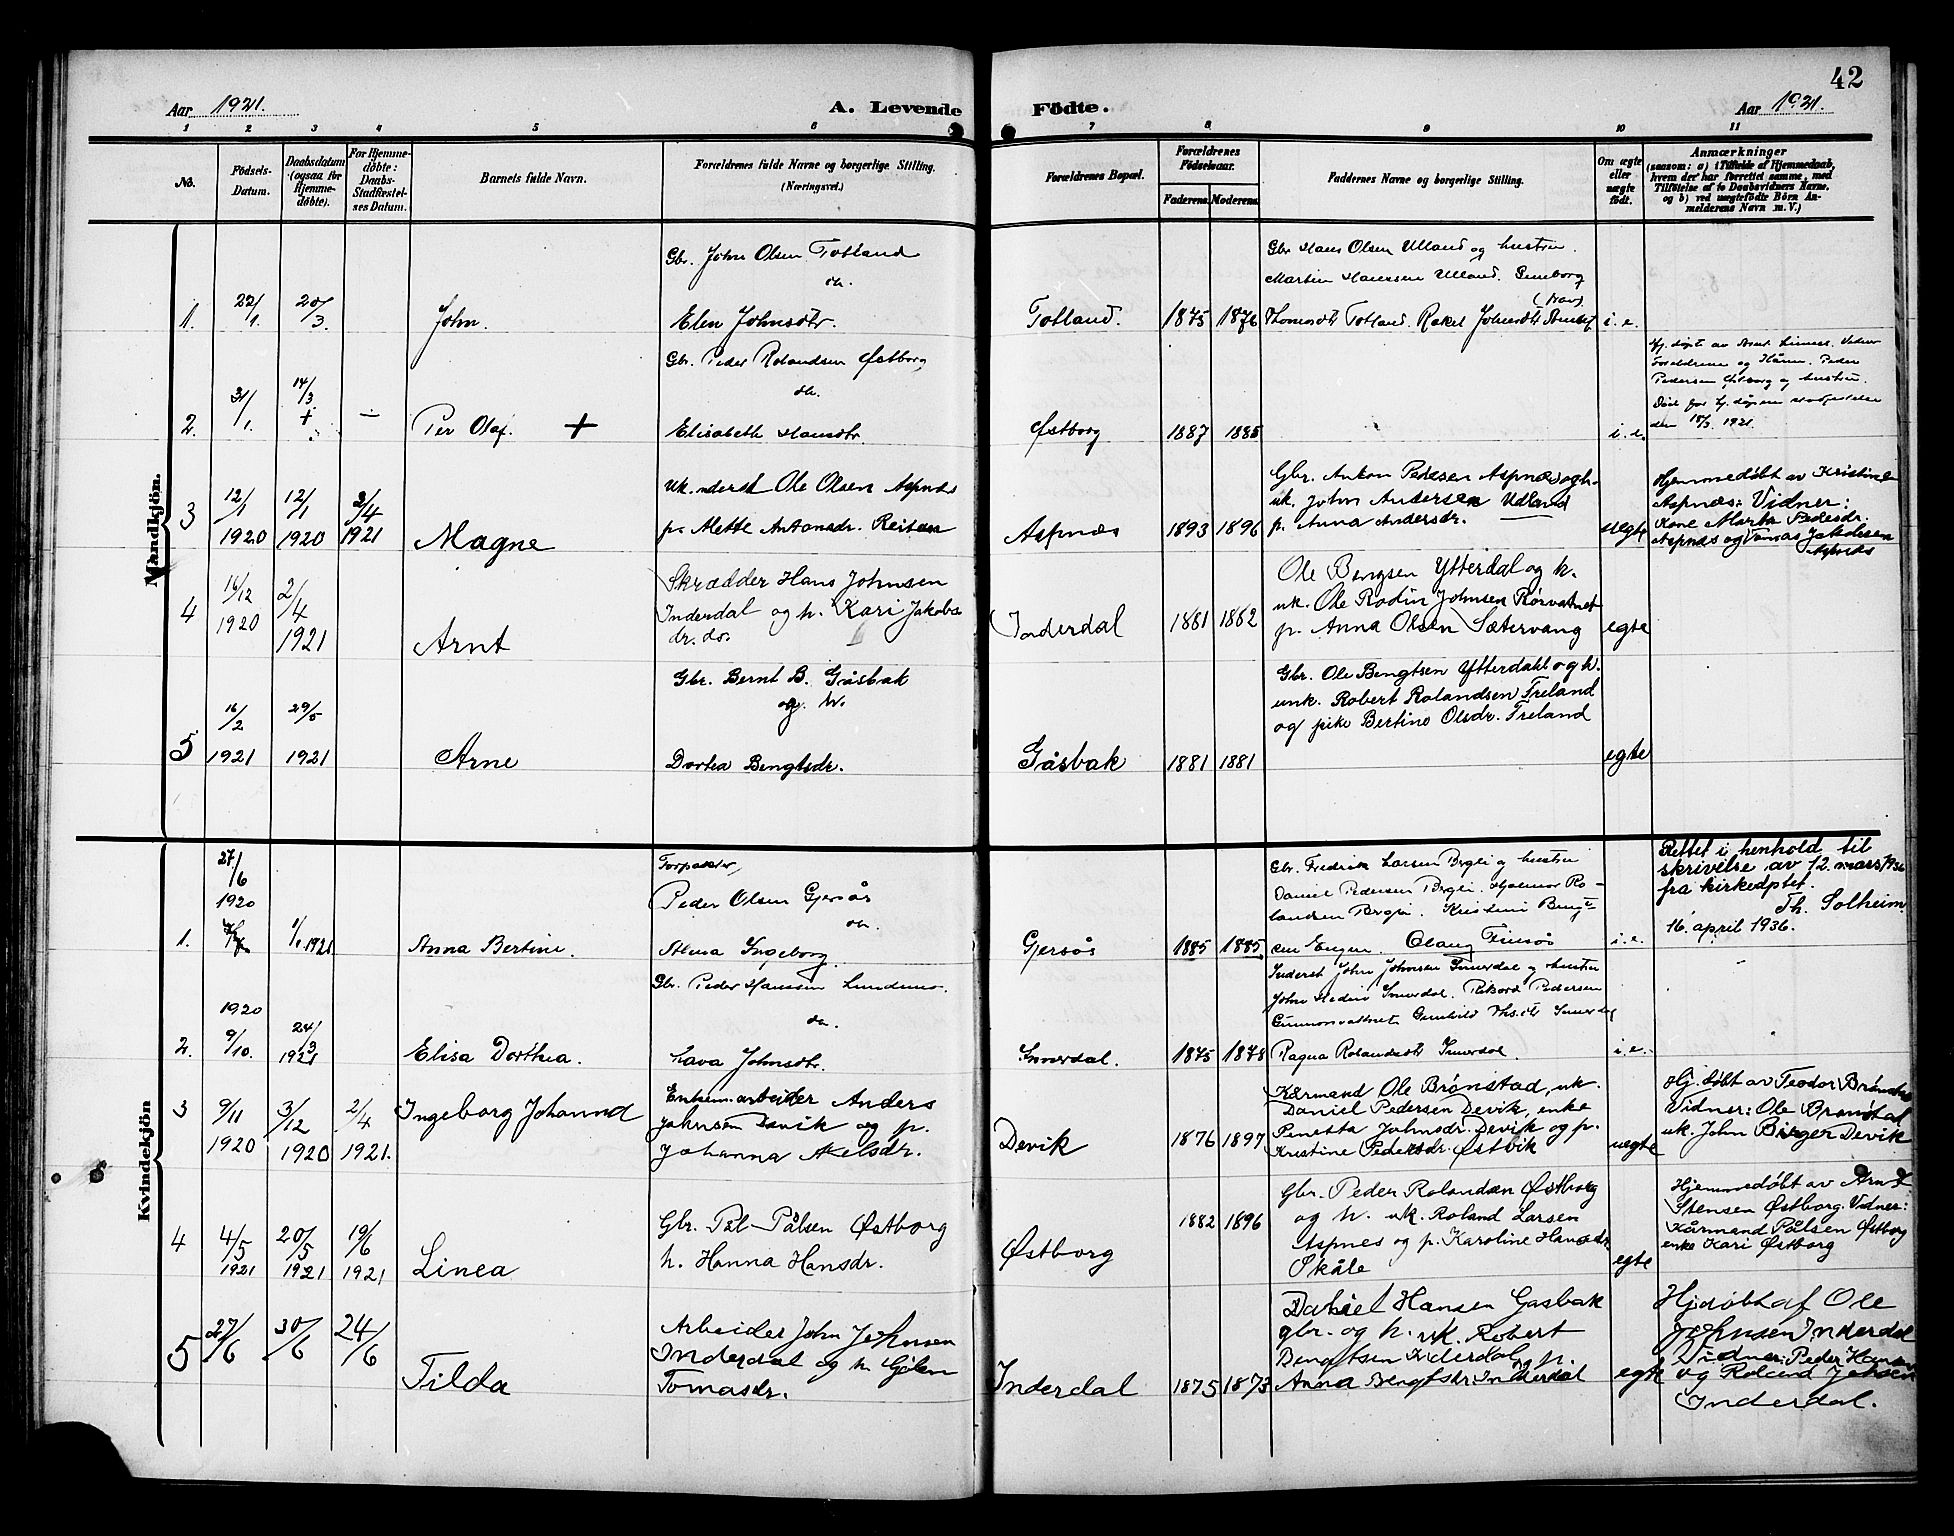 42
Aar 1921.
A. Levende Födte.
Aar 1921.
1 2 3 4 5 6 7 8 9 10 11
No.
Födsels-Datum.
Daabsdatum (ogsaa for Hjemmedøbte).
For Hjemmedøbte: Daabs-Stadfæstelses Datum.
Barnets fulde Navn.
Forældrenes fulde Navne og borgerlige Stilling.
(Næringsvei.)
Forældrenes Bopæl.
Forældrenes Födselsaar.
Faderens. Moderens.
Faddernes Navne og borgerlige Stilling.
Om ægte eller uægte født.
Anmærkninger
(saasom: a) i Tilfælde af Hjemmedaab, hvem der har forrettet samme, med Tilföielse af to Daabsvidners Navne, og b) ved uægtefödte Börn Anmelderens Navn m. V.)
Mandkjön.
1. 22/1. 20/3. John.
Gbr. John Olsen Totland
oh.
Elen Johnsdtr.
Totland. 1875 1876
Gbr Hans Olsen Ulland og hustru.
Martin Hansen Ulland.
Thomasdtr Totland. Rakel Johnsdtr
i. e.
2. 31/1. 14/3 + — Per Olaf. +
Gbr. Peder Rolandsen Østborg
oh.
Elisabeth Hansdtr.
Østborg 1887 1885
i. e.
Hj. døpt av
Foreldrene og
Pedersen Østborg og hustru.
Død før hj. dåpens stadfestelse
den 18/3. 1921.
3 12/1 1920 12/1 1920 3/4 1921 Magne
Uk. nderst Ole Olsen Aspnæs
p. Mette Antonsdr. Reitan
Aspnæs 1893 1896
Gbr. Anton Pedersen Aspnæs og h.
uk. John Andersen Udland
p. Anna Andersdr.
uegte
Hjemmedøbt av Kristine
Aspnæs: Vidner:
Kone Marta Pedersdr.
Aspnæs og Tomas Jakobsen
Aspnæs
4 16/12 1920 2/4 1921 Arnt
Skrædder Hans Johnsen
Inderdal og h. Kari Jakobs
dr. do.
Inderdal 1881 1882
Ole Bengsen Ytterdal og h.
uk. Ole Rodin Johnsen Rørvatnet
p. Anna Olsen Sætervang
egte
5 16/2 1921 29/5 1921 Arne
Gbr. Bernt B. Gåsbak
og h.
Dortea Bengtsdr.
Gåsbak 1881 1881
Gbr. Ole Bengtsen Ytterdahl og h.
unk. Robert Rolandsen Freland
og pike Bertine Olsdr. Freland
egte
Kvindekjön
1. 27/6 1920 1/1 1921 Anna Bertine.
Forpakter,
Peder Olsen Gjersøs
oh.
Alma Ingeborg
Gjersøs 1885 1885
Gbr. Fredrik Larsen Bergli og hustru
Daniel Pedersen Bergli. Hjalmar Ro-
landsen Bergli. Kristine
i. e.
Rettet i henhold til
skrivelse av 12. mars 1936
fra kirkedptet.
Th. Solheim.
16. april 1936.
2. 1920 9/10. 24/3 1921 Elisa Dorthea.
Gbr. Peder Hansen Lundmo.
oh.
Lava Johnsdtr.
Innerdal. 1875 1878
Inderst John Johnsen Innerdal og hustru
John Innerdal. Pedersen
Gunnarsvattnet Gunhild Innerdal
Ragna Rolandsdtr Innerdal.
i. e.
3 9/11 1920 3/12 1920 2/4 1921. Ingeborg Johanna
Enkem. arbeider Anders
Johnsen Devik og p.
Johanna Akelsdr.
Devik 1876 1897
Kårmand Ole Brønstad, uk.
Daniel Pedersen Devik, enke
Penetta Johnsdr. Devik og p.
Kristine Pedersdr. Østvik
uegte
Hj. døbt av Teodor Brønstad
Vidner: Ole Brønstad
uk. John Birger Devik
4 4/5 1921 20/5 1921 19/6 1921 Linea
Gbr. Pål Pålsen Østborg
h. Hanna Hansdr.
Østborg 1882 1896
Gbr. Peder Rolandsen Østborg
og h. uk. Roland Larsen
Aspnes og p. Karoline Hansdr.
Skåle
egte
Hjemmedøbt av Arnt
Stensen Østborg. Vidner:
Kårmand Pålsen Østborg
enke Kari Østborg
5 27/6 30/6 24/6 Tilda
Arbeider John Johnsen
Inderdal og h Gølin
Tomasdr.
Inderdal 1875 1873
Daniel Hansen Gasbak
gbr. og h. uk. Robert
Bengtsen Inderdal og p.
Anna Bengtsdr. Inderdal
egte
Hjdøbt af Ole
Johnsen Inderdal
Vidner: Peder Hansen
og Roland Jensen
Inderdal.